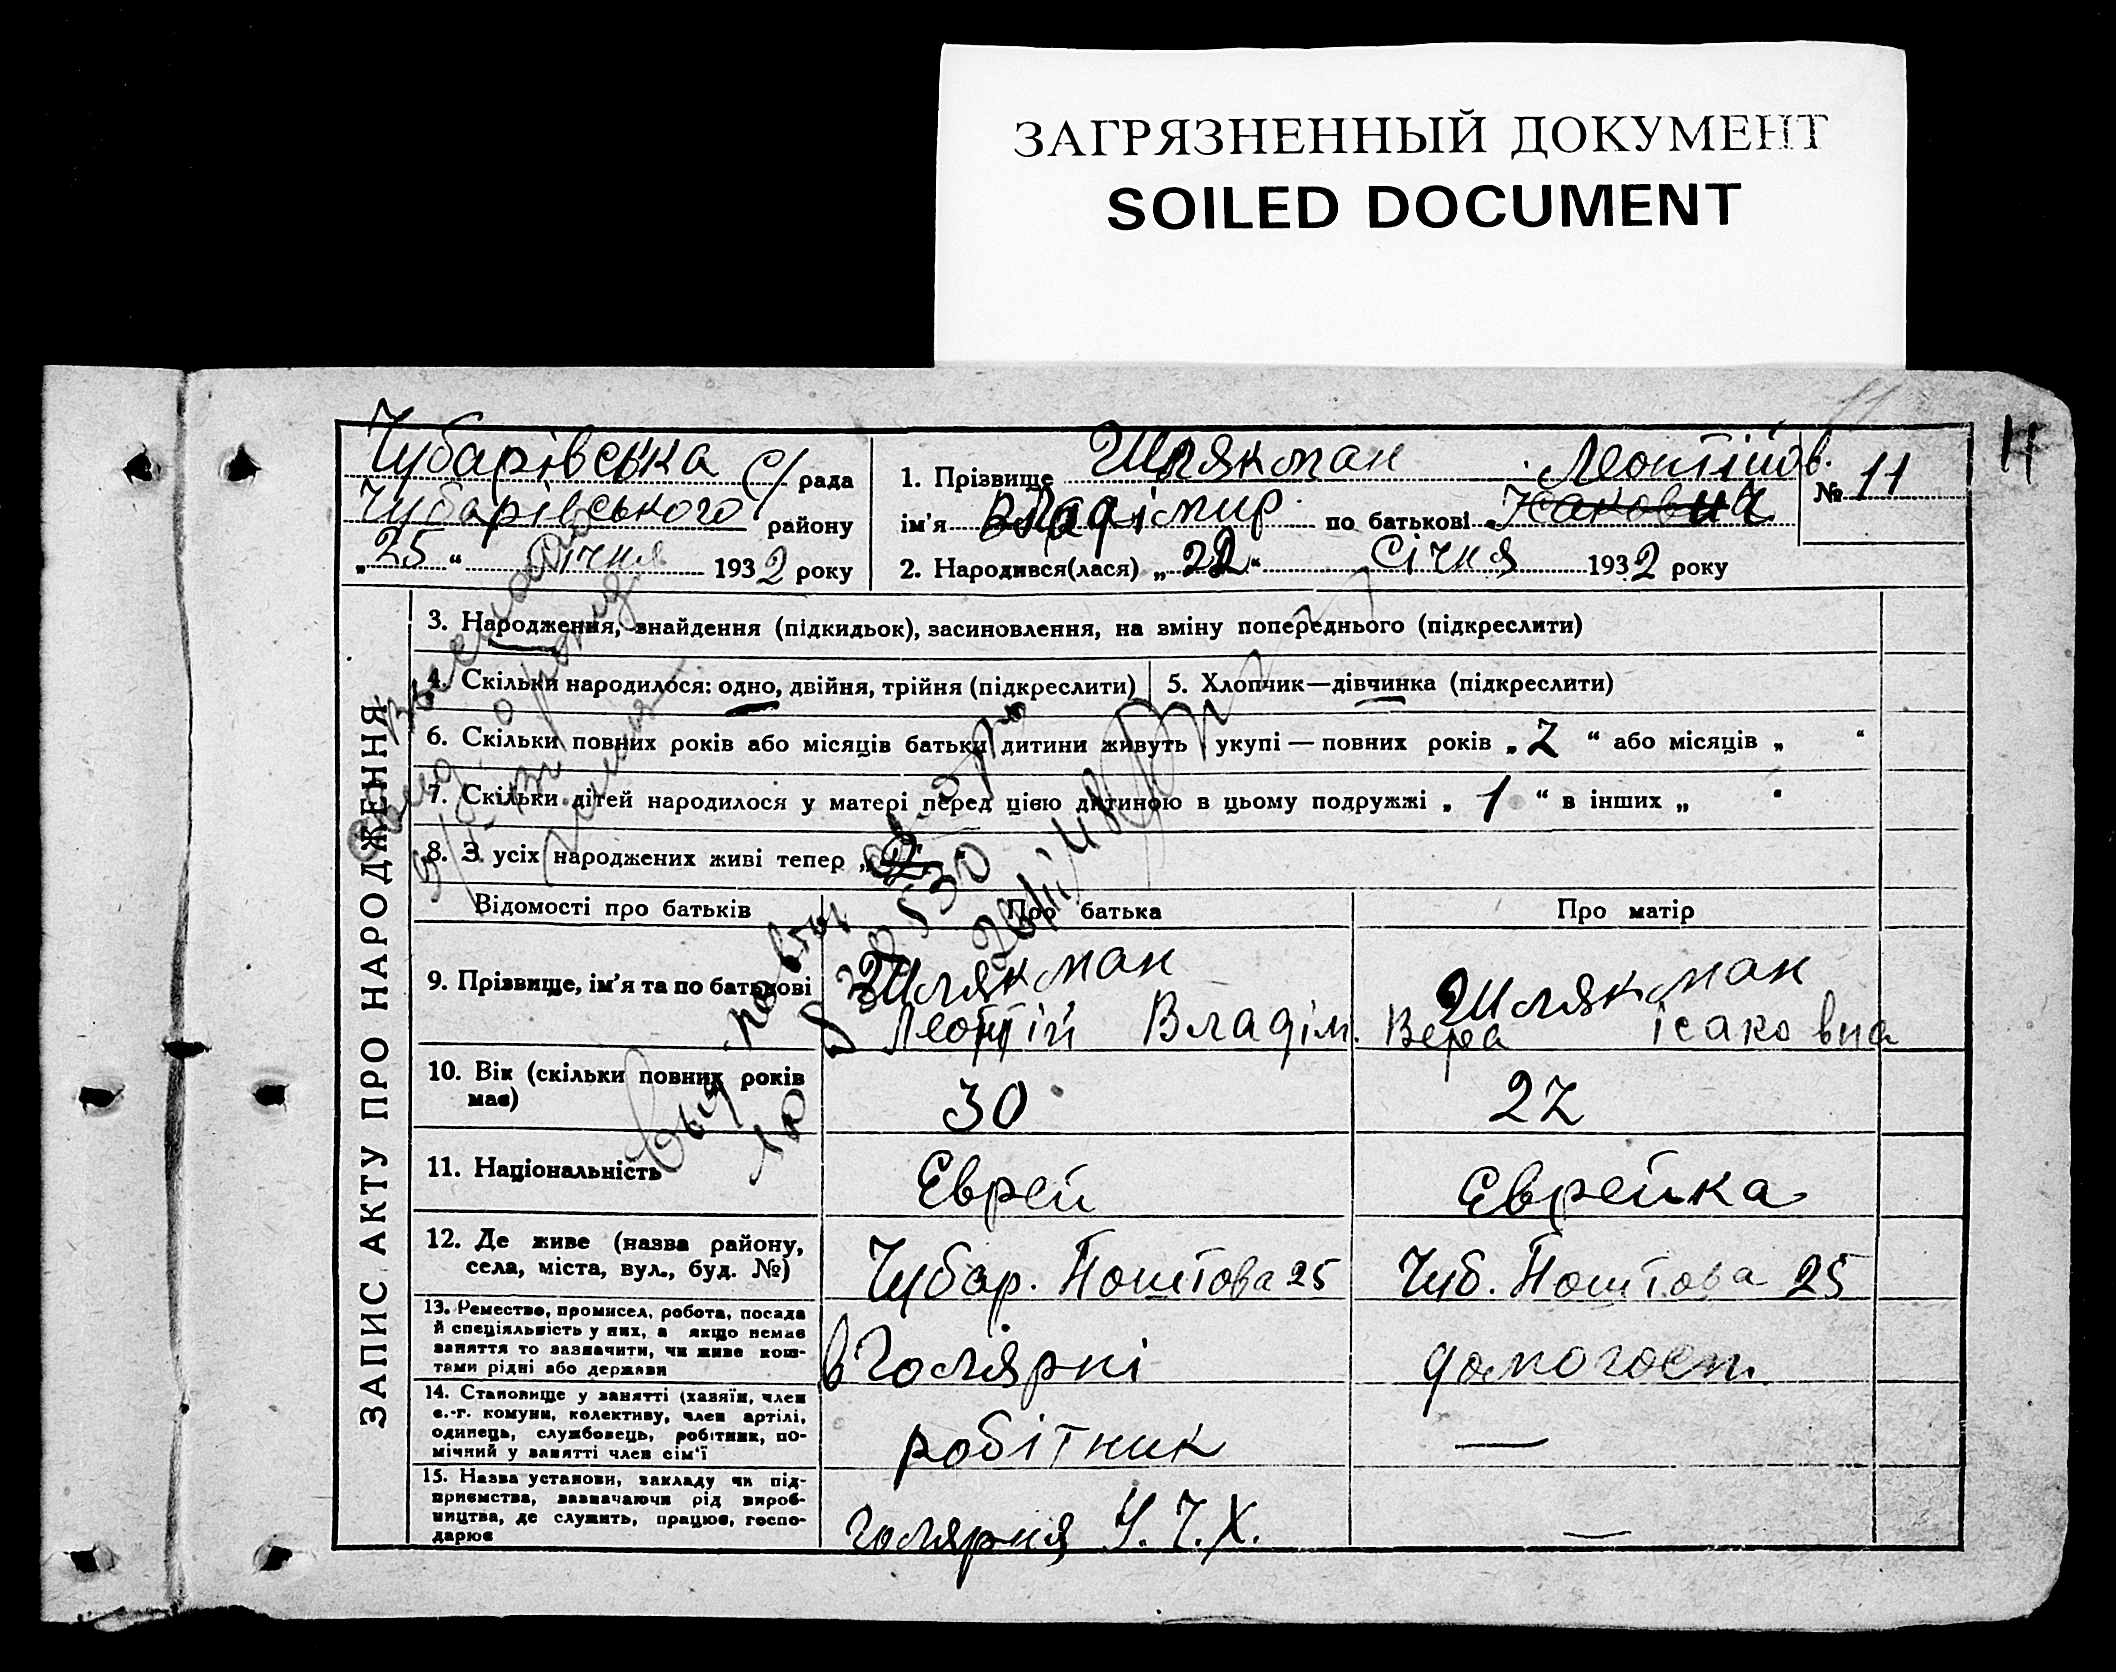 ЗАГРЯЗНЕННЫЙ ДОКУМЕНТ
SOILED DOCUMENT
11
Чубарівська с/ рада
Чубарівського району
„ 25 “ Січня 1932 року
1. Прізвище Шлякман Леонтійов.
ім'я Владімир по батькові
№ 11
2. Народився(лася) „ 22 “ Січня 1932 року
ЗАПИС АКТУ ПРО НАРОДЖЕННЯ
3. Народження, знайдення (підкидьок), засиновлення, на зміну попереднього (підкреслити)
4. Скільки народилося: одно, двійня, трійня (підкреслити)
5. Хлопчик—дівчинка (підкреслити)
6. Скільки повних років або місяців батьки дитини живуть укупі — повних років „ 2 “ або місяців „ “
7. Скільки дітей народилося у матері перед цією дитиною в цьому подружжі „ 1 “ в інших „ “
8. З усіх народжених живі тепер „ 2 “
Відомості про батьків
Про батька
Про матір
9. Прізвище, ім'я та по батькові
Шлякман
Леонтій Владім.
Шлякман
Вера Ісаковна
10. Вік (скільки повних років
має)
30
22
11. Національність
Єврей
Єврейка
12. Де живе (назва району,
села, міста, вул., буд. №)
Чубар. Поштова 25
Чуб. Поштова 25
13. Ремество, промисел, робота, посада
й спеціяльність у них, а якщо немає
заняття то зазначити, чи живе кош-
тами рідні або держави
домогосп.
14. Становище у занятті (хазяїн, член
с.-г. комуни, колективу, член артілі,
одинець, службовець, робітник, по-
мічний у занятті член сім'ї
робітник
—
15. Назва установи, закладу чи під-
приємства, зазначаючи рід вироб-
ництва, де служить, працює, госпо-
дарює
—